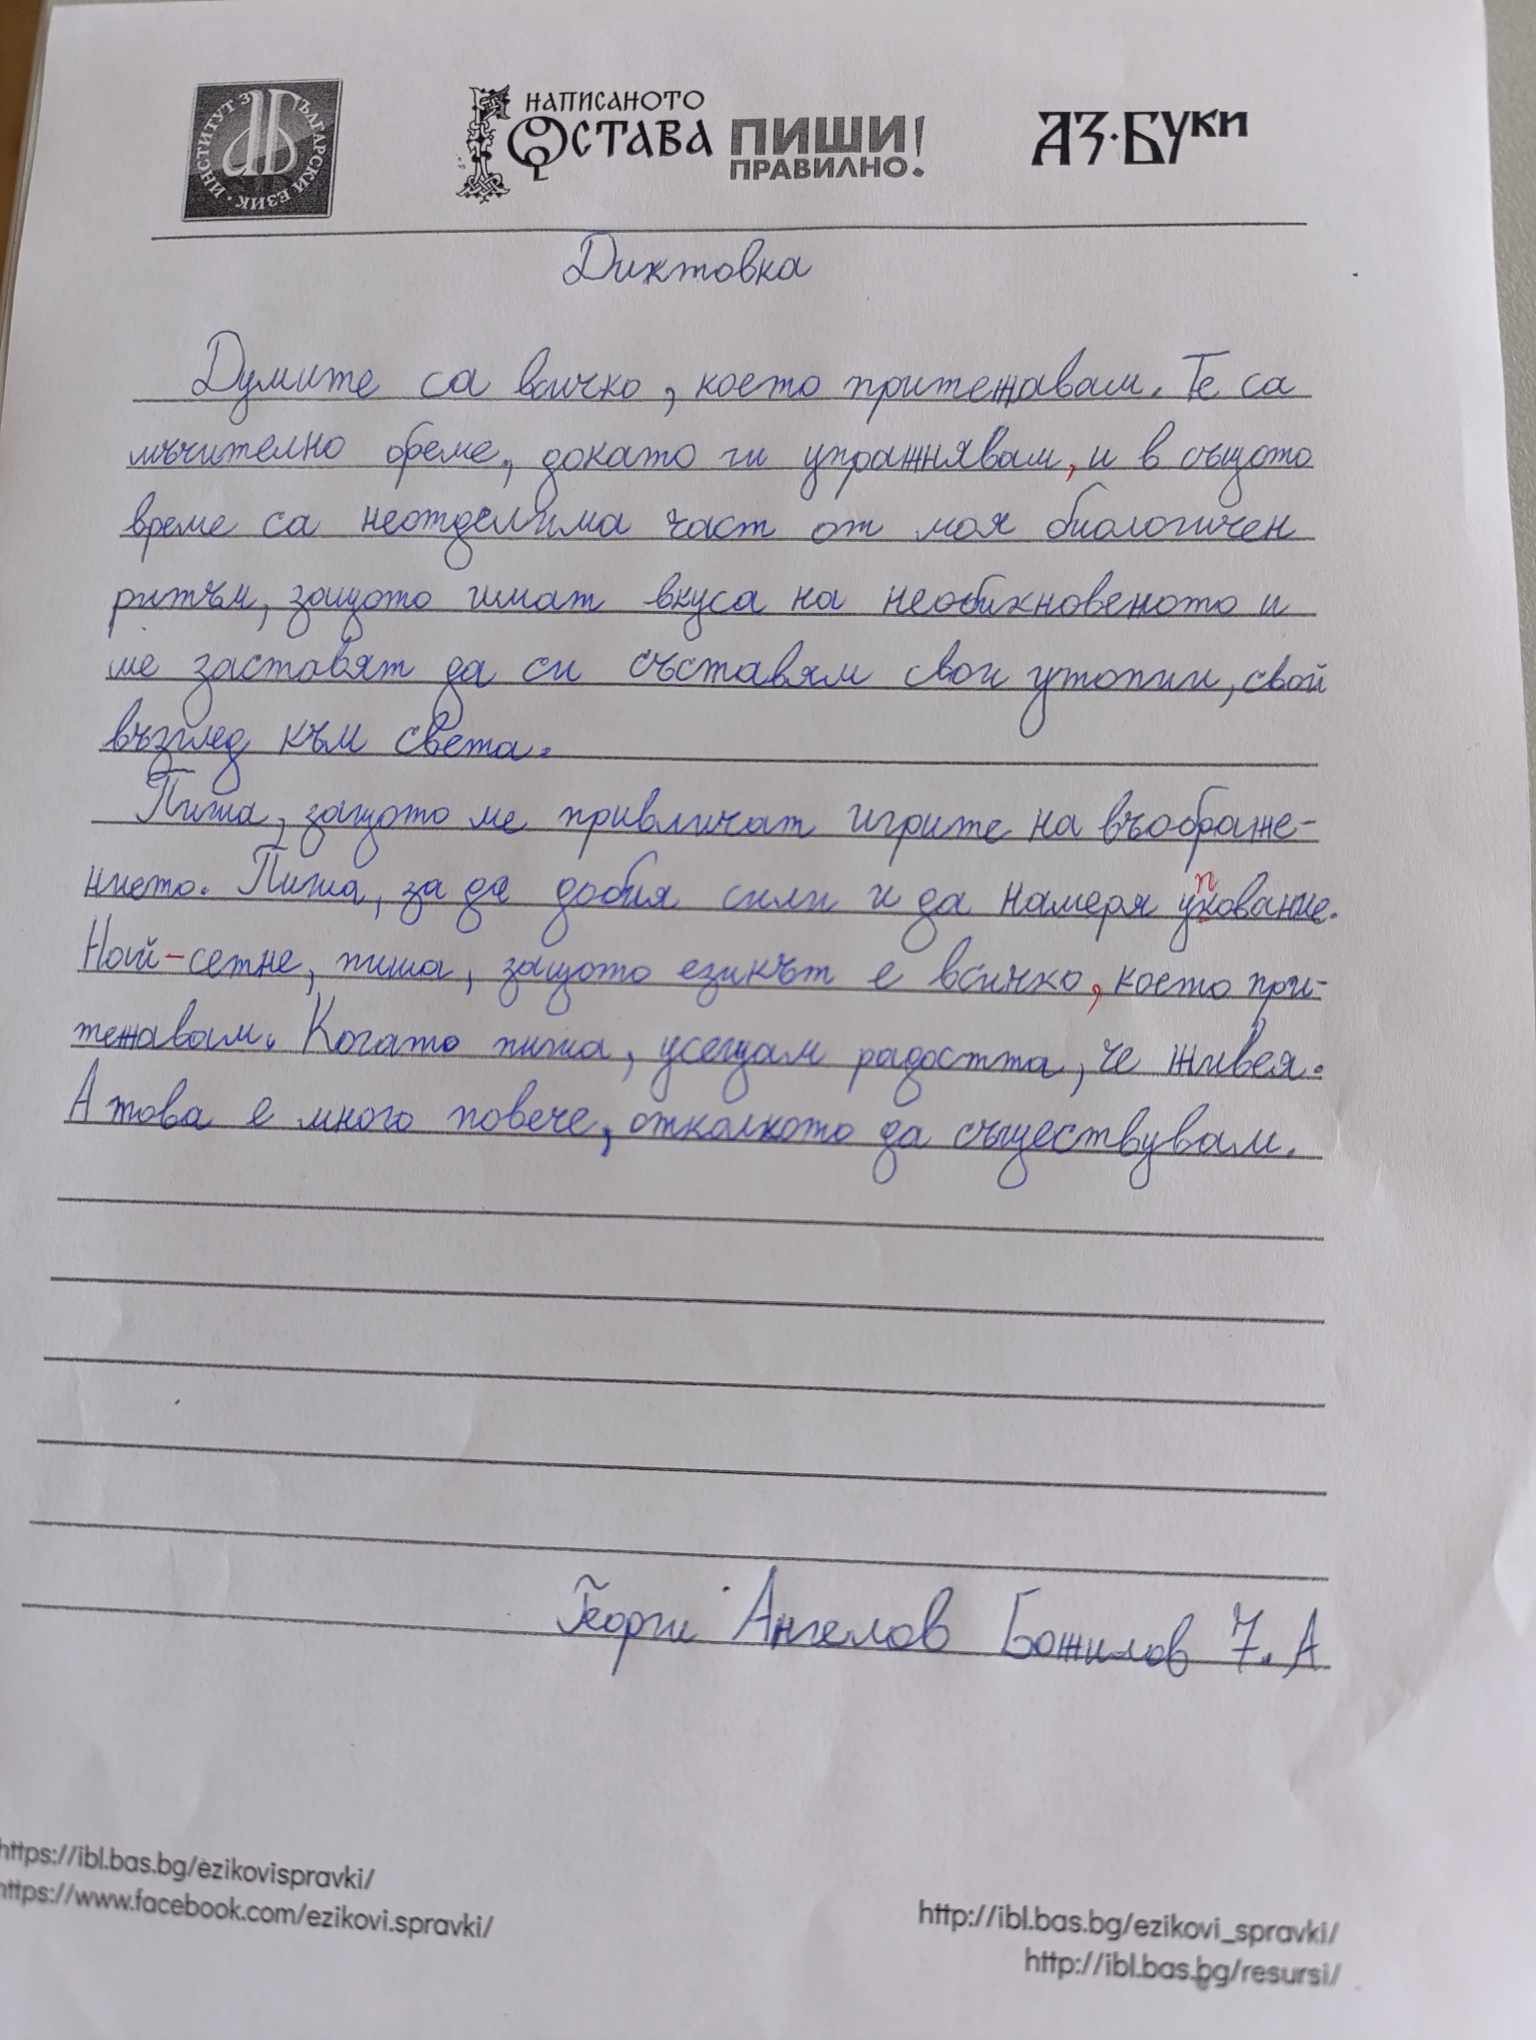 ИНСТИТУТ ЗА БЪЛГАРСКИ ЕЗИК
НАПИСАНОТО
ОСТАВА ПИШИ
ПРАВИЛНО!
АЗ·БУКИ
Диктовка
Думите са всичко, което притежавам. Те са
мъчително бреме, докато ги упражнявам, и в същото
време са неотделима част от моя биологичен
ритъм, защото имат вкуса на необикновеното и
ме заставят да си съставям свои утопии, свой
възглед към света.
Пиша, защото ме привличат игрите на въображе-
нието. Пиша, за да добия сили и да намеря упование.
Най-сетне, пиша, защото езикът е всичко, което при-
тежавам. Когато пиша, усещам радостта, че живея.
А това е много повече, отколкото да съществувам.
Георги Ангелов Божилов 7. А
https://ibl.bas.bg/ezikovispravki/
https://www.facebook.com/ezikovi.spravki/
http://ibl.bas.bg/ezikovi_spravki/
http://ibl.bas.bg/resursi/